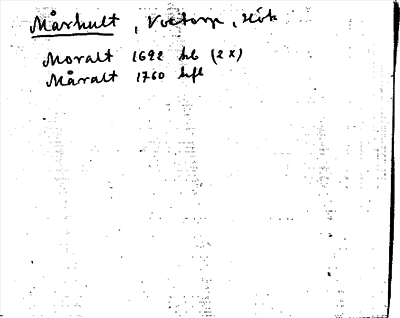 Mårhult, Voxtorp, Hök
Moralt 1692 hb (2x)
Måralt 1760 hfl